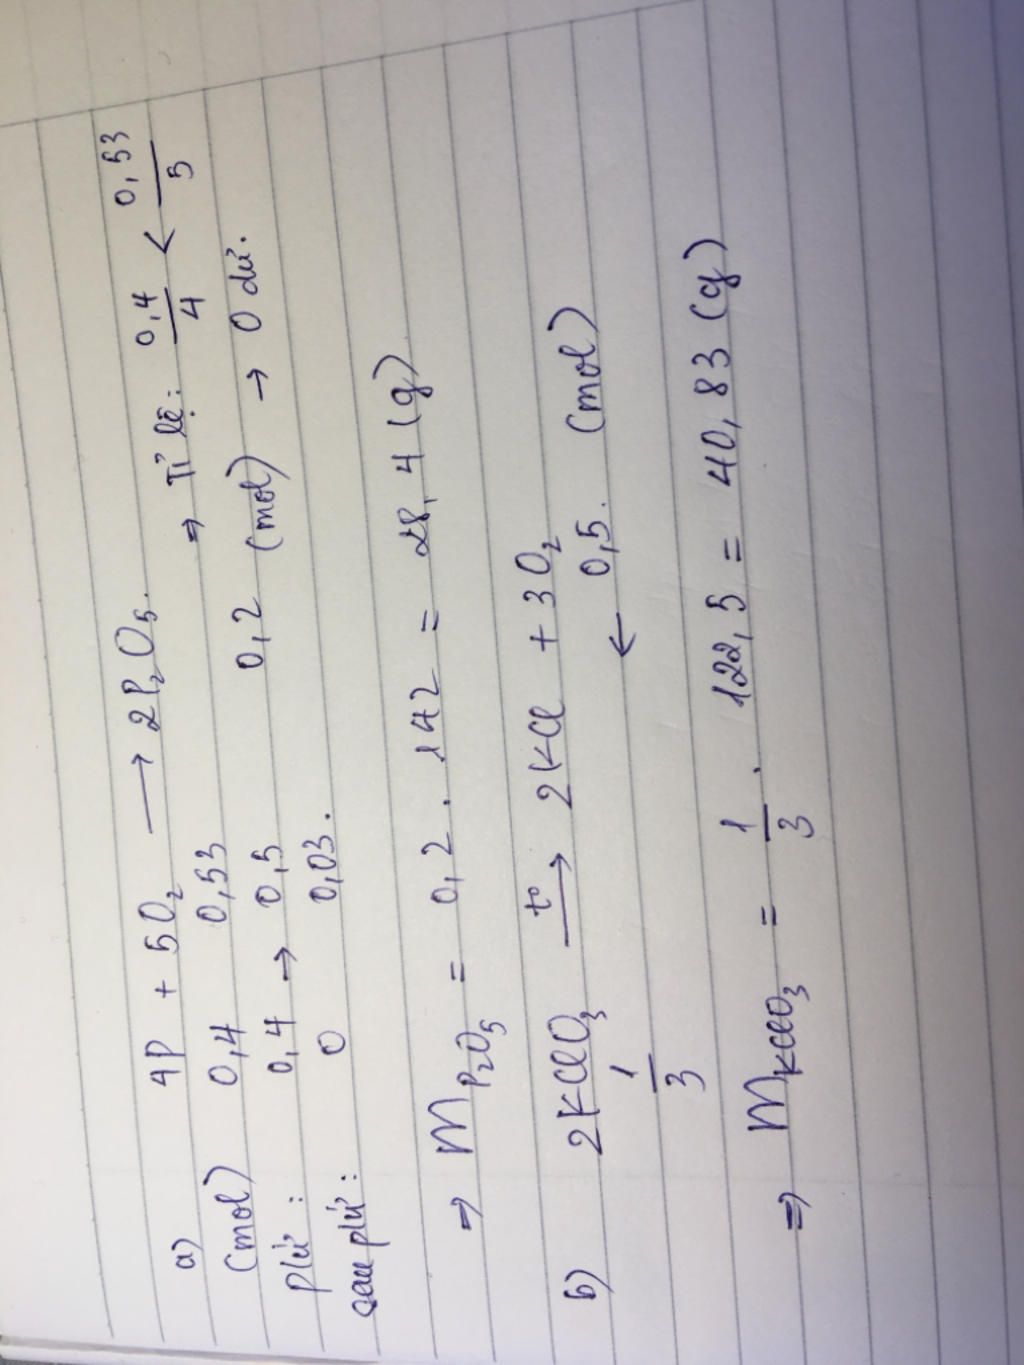 a) 4P + 5O₂ ⟶ 2P₂O₅. ⇒ Tỉ lệ: 0,4/4 < 0,53/5
(mol) 0,4 0,53
pứ: 0,4 → 0,5 0,2 (mol) → O dư.
sau pứ: 0 0,03.
⇒ mP₂O₅ = 0,2 . 142 = 28,4 (g)
b) 2KClO₃ t⁰⟶ 2KCl + 3O₂
1/3 ← 0,5. (mol)
⇒ mKClO₃ = 1/3 . 122,5 = 40,83 (g)